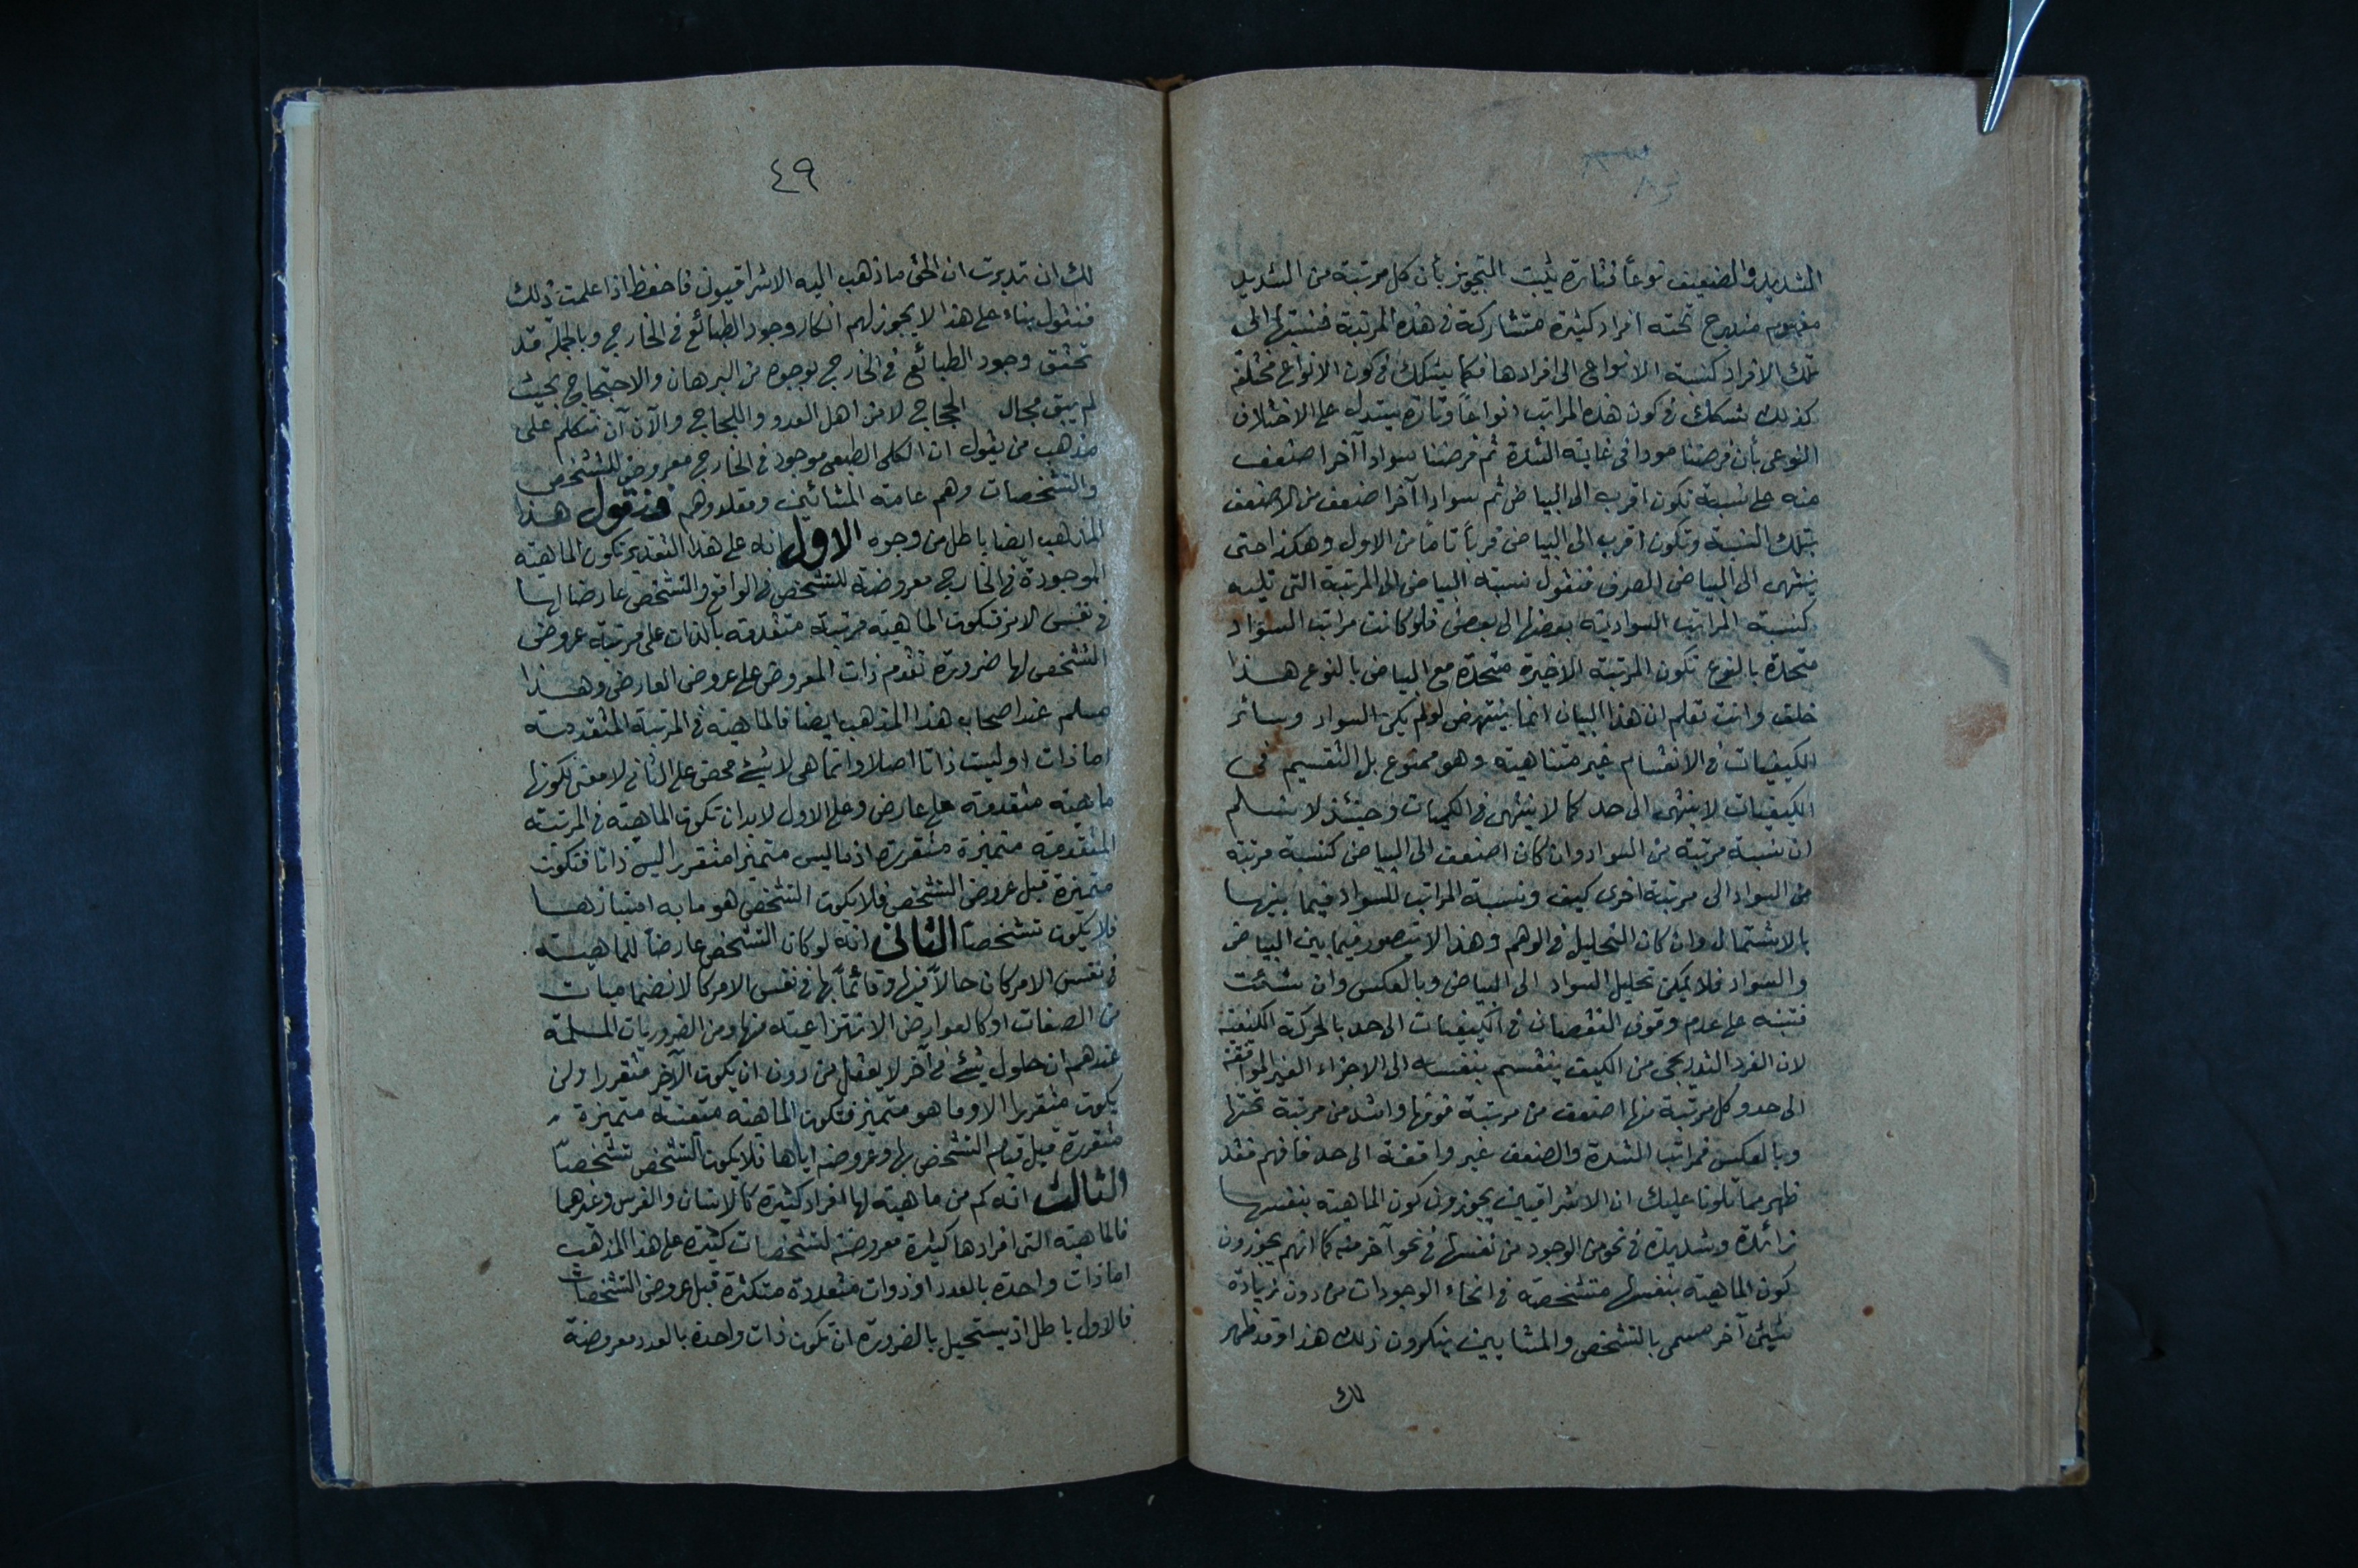 الشديد والضعيف نوعاً فتارة يثبت التجويز بأن كل مرتبة من الشديد
مفهوم مندرج تحته افراد كثيرة متشاركة فى هذه المرتبة فنسبتها الى
تلك الافراد كنسبة الانواع الى افرادها فكما يشكك فى كون الانواع مختلفة
كذلك تشكك فى كون هذه المراتب انواعاً وتارة يستدل على الاختلاف
النوعى بأن فرضنا سوادا فى غاية الشدة ثم فرضنا سوادا آخر اضعف
منه على نسبة تكون اقرب الى البياض ثم سوادا آخر اضعف من الاضعف
بتلك النسبة وتكون اقرب الى البياض قرباً تاماً من الاول وهكذا حتى
ينتهى الى البياض الصرف فنقول نسبة البياض الى المرتبة التى تليه
كنسبة المراتب السوادية بعضها الى بعض فلو كانت مراتب السواد
متحدة بالنوع تكون المرتبة الاخيرة متحدة مع البياض بالنوع هذا
خلف وانت تعلم ان هذا البيان انما ينتهض لو لم يكن السواد وسائر
الكيفيات فى الانقسام غير متناهية وهو ممنوع بل التقسيم فى
الكيفيات لا ينتهى الى حد كما لا ينتهى فى الكميات وحينئذ لا نسلم
ان نسبة مرتبة من السواد وان كان اضعف الى البياض كنسبة مرتبة
من السواد الى مرتبة اخرى كيف ونسبة المراتب للسواد فيما بينها
بالاشتمال وان كان التحليل فى الوهم وهذا لا يتصور فيما بين البياض
والسواد فلا يمكن تحليل السواد الى البياض وبالعكس وان شئت
فتنبه على عدم وقوف النقصان فى الكيفيات الى حد بالحركة الكيفية
لان الفرد التدريجى من الكيف ينقسم بنفسه الى الاجزاء الغير الواقفة
الى حد وكل مرتبة منها اضعف من مرتبة فوقها واشد من مرتبة تحتها
وبالعكس فمراتب الشدة والضعف غير واقفة الى حد فافهم فقد
ظهر مما تلونا عليك ان الاشراقيين يجوزون كون الماهية بنفسها
زائدة وشديدة فى نحو من الوجود من نفسها فى نحو آخر منه كما انهم يجوزون
كون الماهية بنفسها متشخصة فى انحاء الوجودات من دون زيادة
شيئ آخر مسمى بالتشخص والمشايين ينكرون ذلك هذا وقد ظهر
لك
٤٩
لك ان تدبرت ان الحق ما ذهب اليه الاشراقيون فاحفظ اذا علمت ذلك
فنقول بناء على هذا لا يجوز لهم انكار وجود الطبائع فى الخارج وبالجملة قد
تحقق وجود الطبائع فى الخارج بوجوه من البرهان والاحتجاج بحيث
لم يبق مجال الحجاج لا من اهل العدو واللجاج والآن آن نتكلم على
مذهب من يقول ان الكلى الطبعى موجود فى الخارج معروض للتشخص
والتشخصات وهم عامة المشائين ومقلدوهم فنقول هذا
المذهب ايضا باطل من وجوه الاول انه على هذا التقدير تكون الماهية
الموجودة فى الخارج معروضة للتشخص فى الواقع والتشخص عارضا لها
فى نفس الامر فتكون الماهية مرتبة متقدمة بالذات على مرتبة عروض
التشخص لها ضرورة تقدم ذات المعروض على عروض العارض وهذا
مسلم عند اصحاب هذا المذهب ايضا فالماهية فى المرتبة المتقدمة
اما ذات او ليست ذاتا اصلا وانما هى لا شيئ محض على الثانى لا معنى لكونها
ماهية متقدمة على عارض وعلى الاول لا بد ان تكون الماهية فى المرتبة
المتقدمة متميزة متقررة اذ ما ليس متميزا متقررا ليس ذاتا فتكون
متميزة قبل عروض التشخص فلا يكون التشخص هو ما به امتيازها
فلا يكون تشخصاً الثانى انه لو كان التشخص عارضاً للماهية
فى نفس الامر كان حالاً فيها وقائماً بها فى نفس الامر كالانضماميات
من الصفات او كالعوارض الانتزاعية منها ومن الضروريات المسلمة
عندهم ان حلول شيئ فى آخر لا يعقل من دون ان يكون الآخر متقررا ولن
يكون متقررا الا وما هو متميز فتكون الماهية متعينة متميزة
متقررة قبل قيام التشخص بها وعروضه اياها فلا يكون التشخص تشخصاً
الثالث انه كم من ماهية لها افراد كثيرة كالانسان والفرس وغيرهما
فالماهية التى افرادها كثيرة معروضة لتشخصات كثيرة على هذا المذهب
اما ذات واحدة بالعدد او ذوات متعددة متكثرة قبل عروض التشخصات
فالاول باطل اذ يستحيل بالضرورة ان تكون ذات واحدة بالعدد معروضة